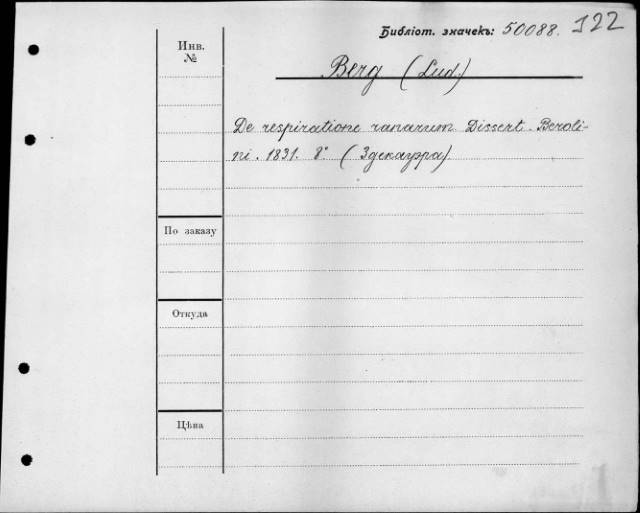 Библіот. значекъ: 50088. 122
Инв.
№
Berg (Lud.)
De respiratione ranarum. Dissert. Beroli-
ni. 1831. 8° (Здекауэра).
По заказу
Откуда
Цѣна